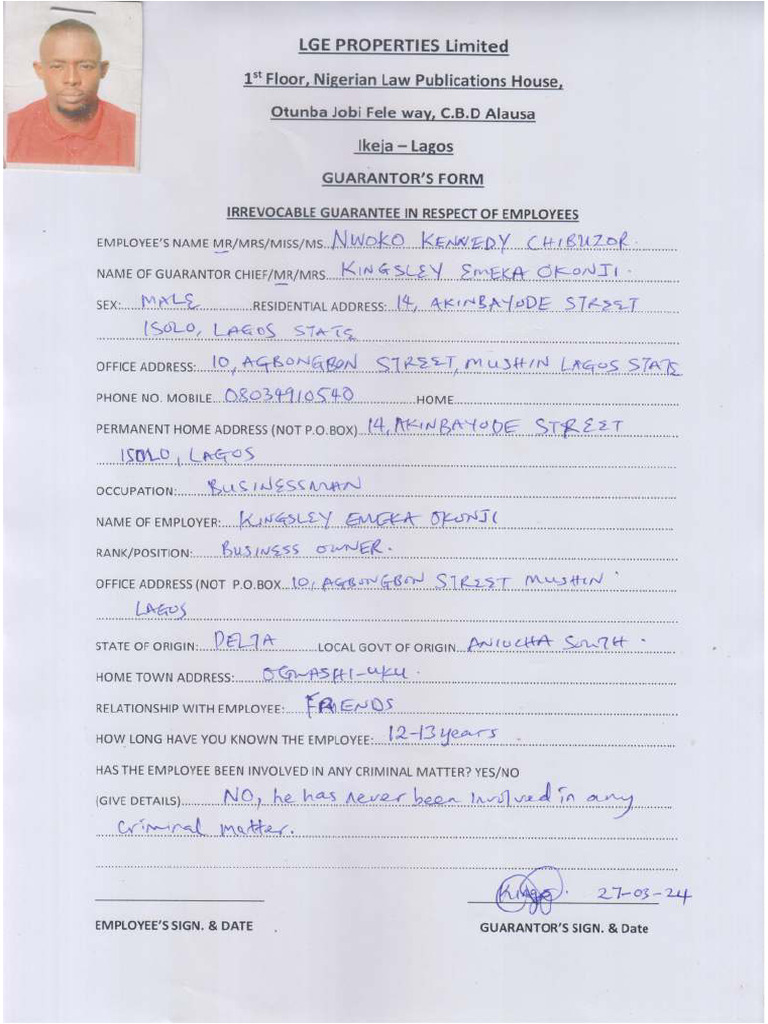 LGE PROPERTIES Limited
1st Floor, Nigerian Law Publications House,
Otunba Jobi Fele way, C.B.D Alausa
Ikeja – Lagos
GUARANTOR'S FORM
IRREVOCABLE GUARANTEE IN RESPECT OF EMPLOYEES
EMPLOYEE'S NAME MR/MRS/MISS/MS. NWOKO KENNEDY CHIBUZOR.
NAME OF GUARANTOR CHIEF/MR/MRS. KINGSLEY EMEKA OKONJI.
SEX: MALE RESIDENTIAL ADDRESS: 14, AKINBAYODE STREET
ISOLO, LAGOS STATE
OFFICE ADDRESS: 10, AGBONGBON STREET, MUSHIN LAGOS STATE
PHONE NO. MOBILE 08034910540 HOME
PERMANENT HOME ADDRESS (NOT P.O.BOX) 14, AKINBAYODE STREET
ISOLO, LAGOS
OCCUPATION: BUSINESSMAN
NAME OF EMPLOYER: KINGSLEY EMEKA OKONJI
RANK/POSITION: BUSINESS OWNER.
OFFICE ADDRESS (NOT P.O.BOX 10, AGBONGBON STREET MUSHIN
LAGOS
STATE OF ORIGIN: DELTA LOCAL GOVT OF ORIGIN ANIOCHA SOUTH.
HOME TOWN ADDRESS: OGWASHI-UKU.
RELATIONSHIP WITH EMPLOYEE: FRIENDS
HOW LONG HAVE YOU KNOWN THE EMPLOYEE: 12-13 years
HAS THE EMPLOYEE BEEN INVOLVED IN ANY CRIMINAL MATTER? YES/NO
(GIVE DETAILS) NO, he has never been involved in any
criminal matter.
27-03-24
EMPLOYEE'S SIGN. & DATE GUARANTOR'S SIGN. & Date